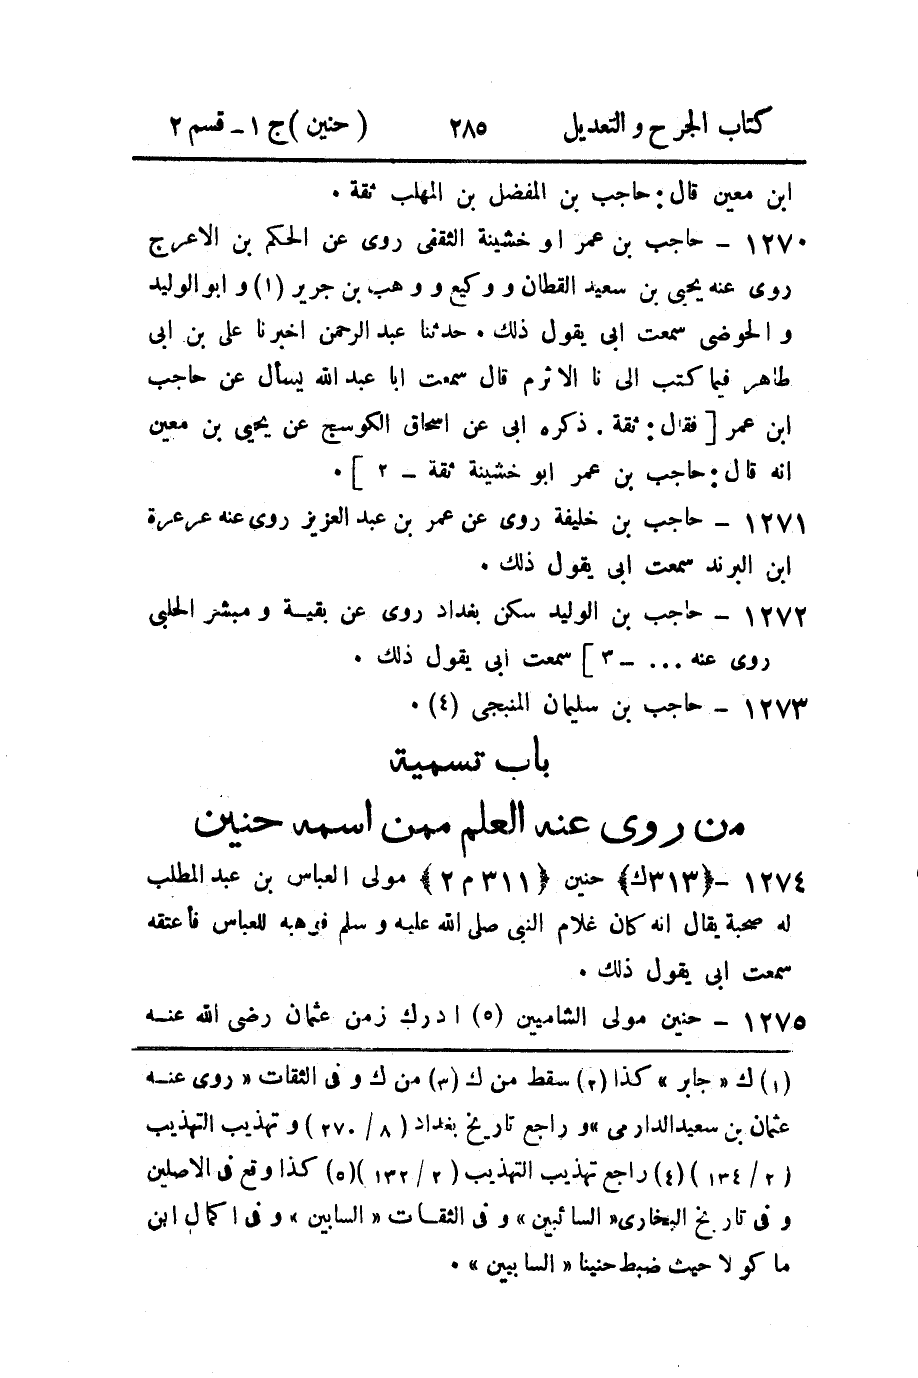 كتاب الجرح و التعديل ٢٨٥ (حنين) ج ١ - قسم ٢
ابن معين قال: حاجب بن المفضل بن المهلب ثقة .
١٢٧٠ - حاجب بن عمر او خشينة الثقفى روى عن الحكم بن الاعرج
روى عنه يحيى بن سعيد القطان و وكيع و وهب بن جرير (١) و ابو الوليد
و الحوضى سمعت ابى يقول ذلك . حدثنا عبد الرحمن اخبرنا على بن ابى
طاهر فيما كتب الى نا الاثرم قال سمعت ابا عبد الله يسأل عن حاجب
ابن عمر [ فقال: ثقة . ذكره ابى عن اسحاق الكوسج عن يحيى بن معين
انه قال: حاجب بن عمر ابو خشينة ثقة - ٢ ] .
١٢٧١ - حاجب بن خليفة روى عن عمر بن عبد العزيز روى عنه عرعرة
ابن البرند سمعت ابى يقول ذلك .
١٢٧٢ - حاجب بن الوليد سكن بغداد روى عن بقية و مبشر الحلبى
روى عنه ... - ٣ ] سمعت ابى يقول ذلك .
١٢٧٣ - حاجب بن سليمان المنبجى (٤) .
باب تسمية
من روى عنه العلم ممن اسمه حنين
١٢٧٤ - ﴿٣١٣ك﴾ حنين ﴿٣١١ م ٢﴾ مولى العباس بن عبد المطلب
له صحبة يقال انه كان غلام النبى صلى الله عليه و سلم فوهبه للعباس فأعتقه
سمعت ابى يقول ذلك .
١٢٧٥ - حنين مولى الشاميين (٥) ادرك زمن عثمان رضى الله عنه
(١) ك « جابر » كذا (٢) سقط من ك (٣) من ك و فى الثقات « روى عنه
عثمان بن سعيد الدارمى » و راجع تاريخ بغداد (٨ / ٢٧٠) و تهذيب التهذيب
(٢ / ١٣٤) (٤) راجع تهذيب التهذيب (٢ / ١٣٢) (٥) كذا وقع فى الاصلين
و فى تاريخ البخارى « السائبين » و فى الثقات « السابين » و فى اكمال ابن
ما كولا حيث ضبط حنينا « السابيين » .